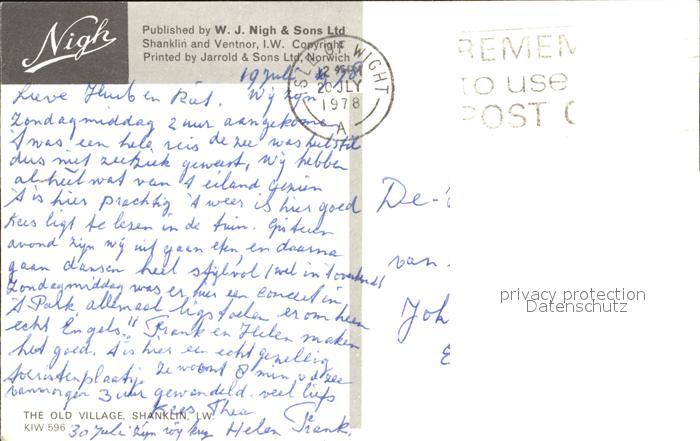 Nigh
Published by W. J. Nigh & Sons Ltd
Shanklin and Ventnor, I.W. Copyright
Printed by Jarrold & Sons Ltd, Norwich
ISLE OF WIGHT
20 JLY
1978
A
REMEM
to use
POST C
19 Juli 78
Lieve Huub en Wij zijn
Zondagmiddag 2 uur aangekomen
't was een hele reis de zee was heel stil
dus niet zeeziek geweest, Wij hebben
al heel wat van 't eiland gezien
't is hier prachtig 't weer is hier goed
Kees ligt te lezen in de tuin. Gisteren
avond zijn wij uit gaan eten en daarna
gaan dansen heel stijlvol (wel in 't
Zondagmiddag was er hier een concert in
't Park. allemaal ligstoelen er om heen
echt Engels!! Frank en Helen maken
het goed. 't is hier een echt gezellig
toeristenplaatsje Ze woont 8 min. v d zee
vanmorgen 3 uur gewandeld. veel liefs
Kees Thea
Helen Frank.
30 Juli zijn wij
De-
van.
Joh
privacy protection
Datenschutz
THE OLD VILLAGE, SHANKLIN, I.W.
KIW 596